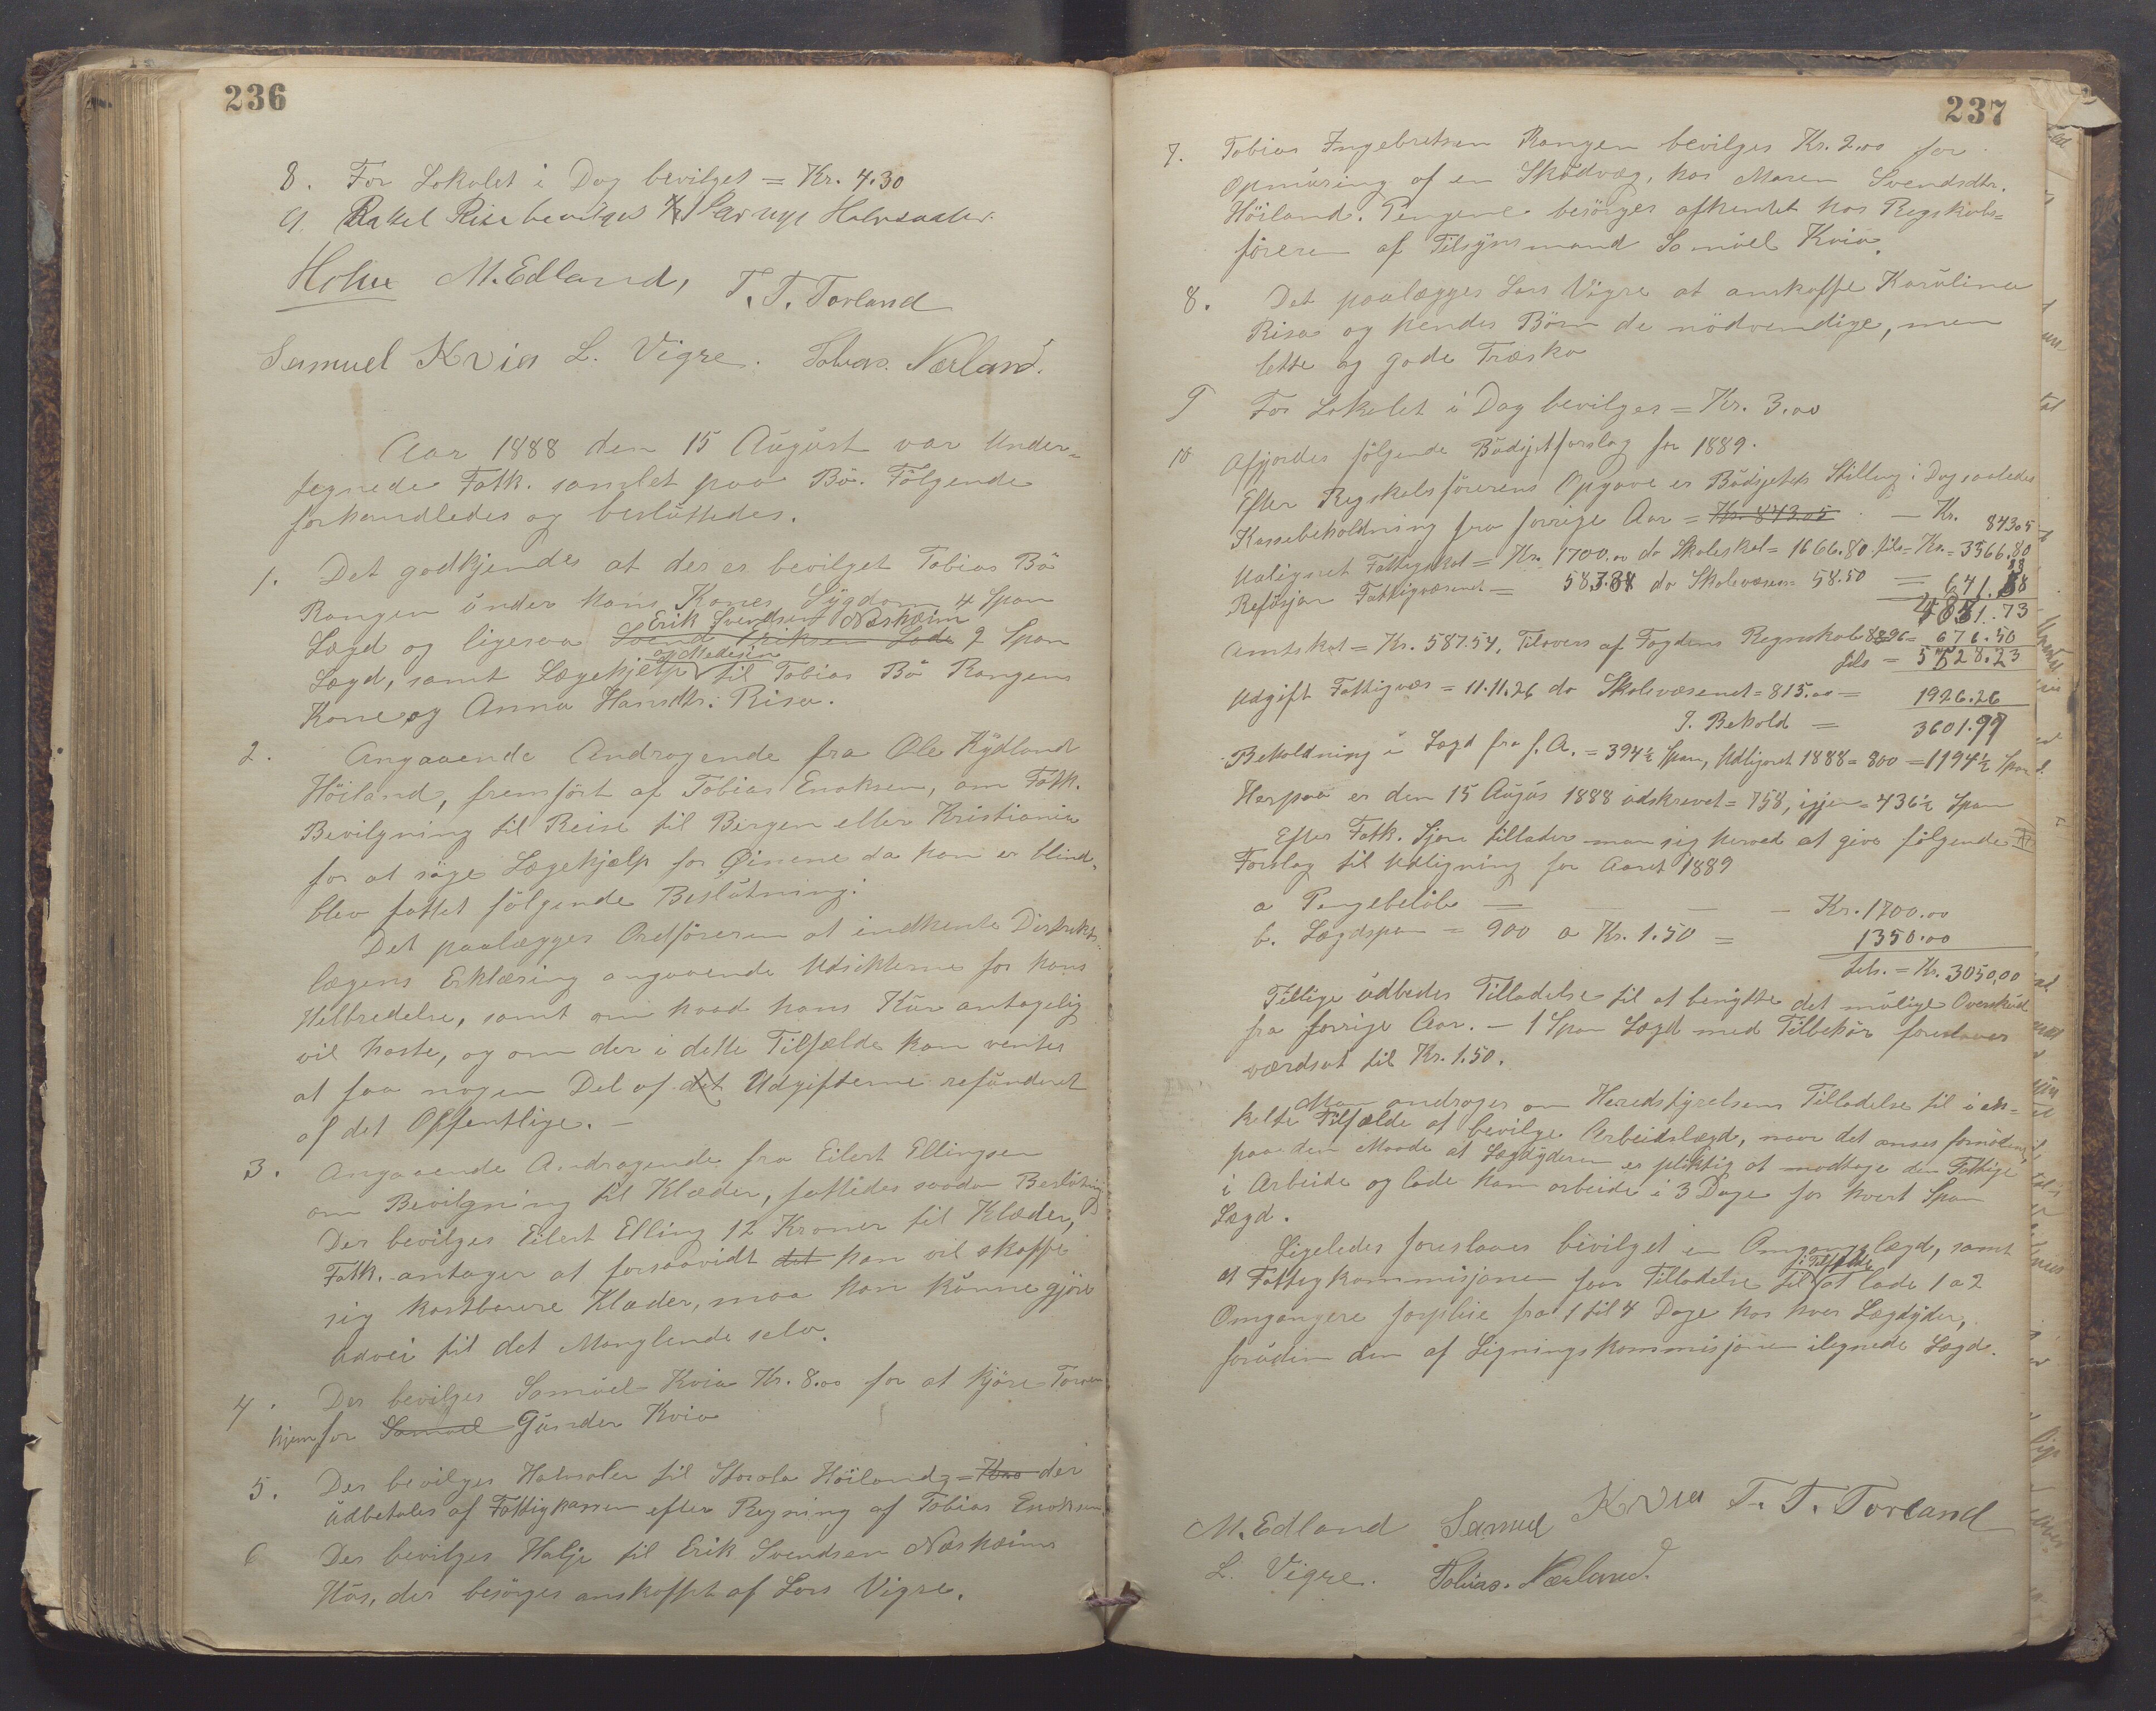 236
8. For Lokalet i Dag bevilges = Kr. 4.30
9. Rakel Risa bevilges Par nye Halvsaaler.
Holm M. Edland, T. T. Torland
Samuel Kvia L. Vigre. Tobias. Nærland.
Aar 1888 den 15 August var Under-
tegnede Fatk. samlet paa Bö. Fölgende
forhandledes og besluttedes.
1. Det godkjendes at der er bevilget Tobias Bö
Rangen under hans Kones Sygdom 4 Span
Erik Svendsen Næsheim
Lægd og ligesaa Svend Eriksen Lode 2 Span
og Medesin
Lægd, samt Lægehjelp til Tobias Bö Rangens
Kone og Anna Hansdtr. Risa.
2. Angaaende Andragende fra Ole Kydland
Höiland, fremfört af Tobias Enoksen, om Fatk.
Bevilgning til Reise til Bergen eller Kristiania
for at söge Lægehjælp for Öinene da han er blind,
blev fattet fölgende Beslutning:
Det paalægges Ordföreren at indhente Distrikts-
lægens Erklæring angaaende Udsikterne for hans
Helbredelse, samt om hvad hans Kur antagelig
vil koste, og om der i dette Tilfælde kan ventes
at faa nogen Del af det Udgifterne refunderet
af det Offentlige. -
3. Angaaende Andragende fra Eilert Ellingsen
om Bevilgning til Klæder, fattedes saadan Beslutning
Der bevilges Eilert Elling 12 Kroner til Klæder,
Fatk. antager at forsaavidt det han vil skaffe
sig kostbarere Klæder, maa han kunne gjöre
Udvei til det Manglende selv.
4. Der bevilges Samuel Kvia Kr. 8.00 for at kjöre Torven
hjem for Samuel Gunder Kvia
5. Der bevilges Halvsaler til Höiland = der
udbetales af Fattigkassen efter Regning af Tobias Enoksen.
6 Der bevilges Halje til Erik Svendsen Næsheims
Hus, der besörges anskaffet af Lars Vigre.
237
7. Tobias Ingebretsen Rangen bevilges Kr. 2.00 for
Opmuring af en Skudvæg, hos Maren Svendsdtr.
Höiland. Pengene besörges afhentet hos Regskabs=
föreren af Tilsynsmand Samuel Kvia.
8. Det paalægges Lars Vigre at anskaffe Karoline
Risa og hendes Börn de nödvendige, men
lette og gode Træsko
9 For Lokalet i Dag bevilges = Kr. 3.00
10 Afgjordes fölgende Budsjetforslag for 1889.
Efter Regskabsförerens Opgave er Budsjetets Stilling i Dag saaledes
Kassebeholdning fra forrige Aar = Kr. 843.05 - Kr. 843.05
Udlignet Fattigskat = Kr. 1700.00 do Skoleskat = 1666.80 tils = Kr. = 3366.80
Refusjon Fattigvæsenet = 583.88 do Skolevæsen = 58.50 = 641.88
4851.73
Amtskat = Kr. 587.54, Tilovers af Fogdens Regnskab 8896 = 676.50
tils = 5528.23
Udgift Fattigvæs = 11.11.26 do Skolevæsenet = 815.00 = 1926.26
I. Behold = 3601.97
Beholdning i Lægd fra f. A. = 394½ Span, Udlignet 1888 = 800 = 1194½ Span
Herpaa er den 15 Augus 1888 udskrevet = 758, igjen = 436½ Span
Efter Fatk. Sjön tillader man sig herved at give fölgende
Forslag til Udligning for Aaret 1889
a Pengebelöb - - - Kr. 1700.00
b. Lægdspan = 900 a Kr. 1.50 = 1350.00
tils. = Kr. 3050,00
Tillige udbedes Tilladelse til at benytte det mulige Overskud
fra forrige Aar. - 1 Span Lægd med Tilbehör foreslaaes
værdsat til Kr. 1.50.
Man andrager om Heredstyrelsens Tilladelse til i en=
kelte Tilfælde at bevilge Arbeidslægd, naar det anses fornödent,
paa den Maade at Lægdyderen er pliktig at modtage den Fattige
i Arbeide og lade ham arbeide i 3 Dage for hvert Span
Lægd.
Ligeledes foreslaaes bevilget en Omgangslægd, samt
i Tilfælde
at Fattigkommisjonen faar Tilladelse til at lade 1 a 2
Omgangere forpleie fra 1 til 4 Dage hos hver Lægdyder,
foruden den af Ligningskommisjonen ilignede Lægd.
M. Edland Samuel Kvia T. T. Torland
L. Vigre. Tobias. Nærland.